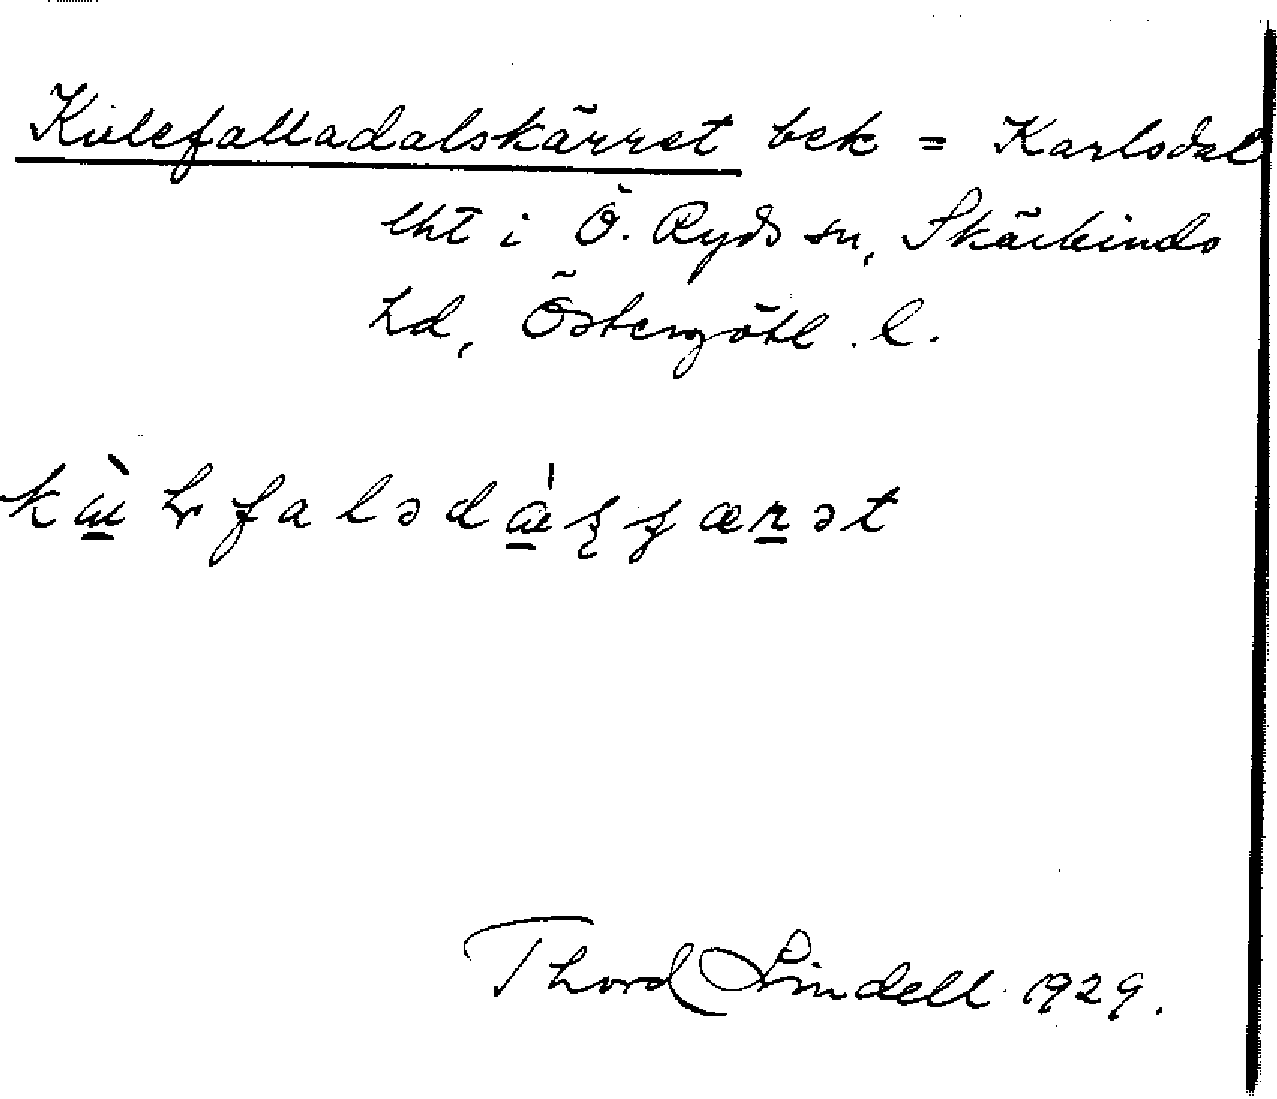 Kulefalladalskärret bek = Karlsdal
lht i Ö. Ryds sn, Skärkinds
hd, Östergötl. l.
Thord Lindell 1929.